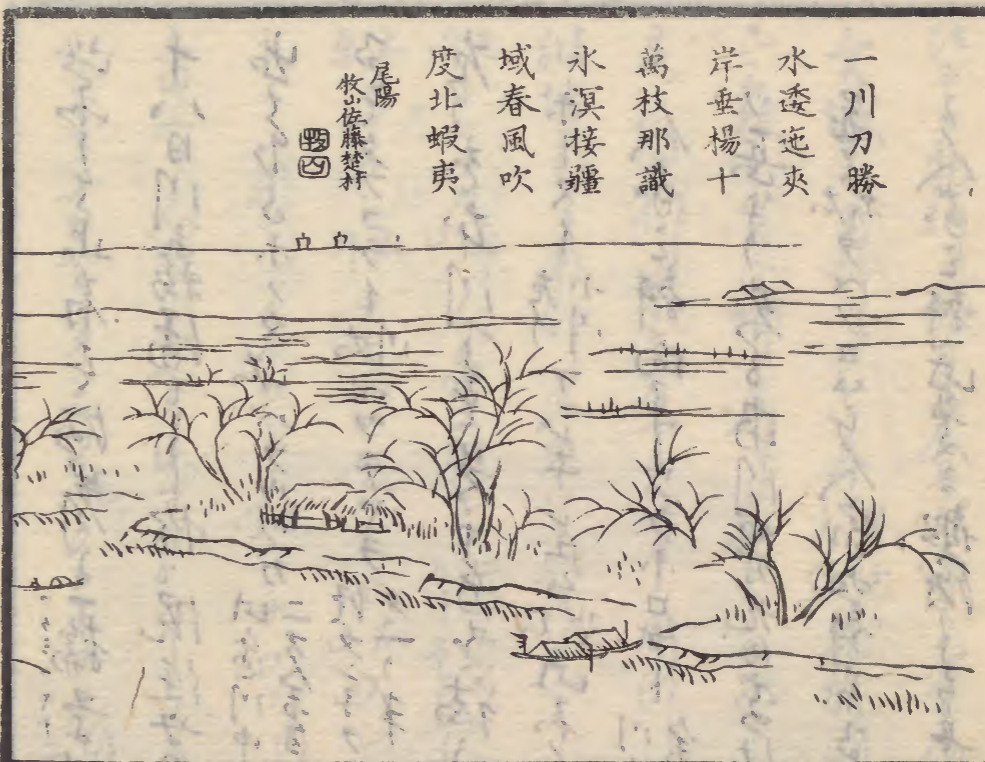 一川刀勝
水逶迤夾
岸垂楊十
萬枝那識
氷溟接疆
域春風吹
度北蝦夷
尾陽
牧山佐藤楚材
牧山